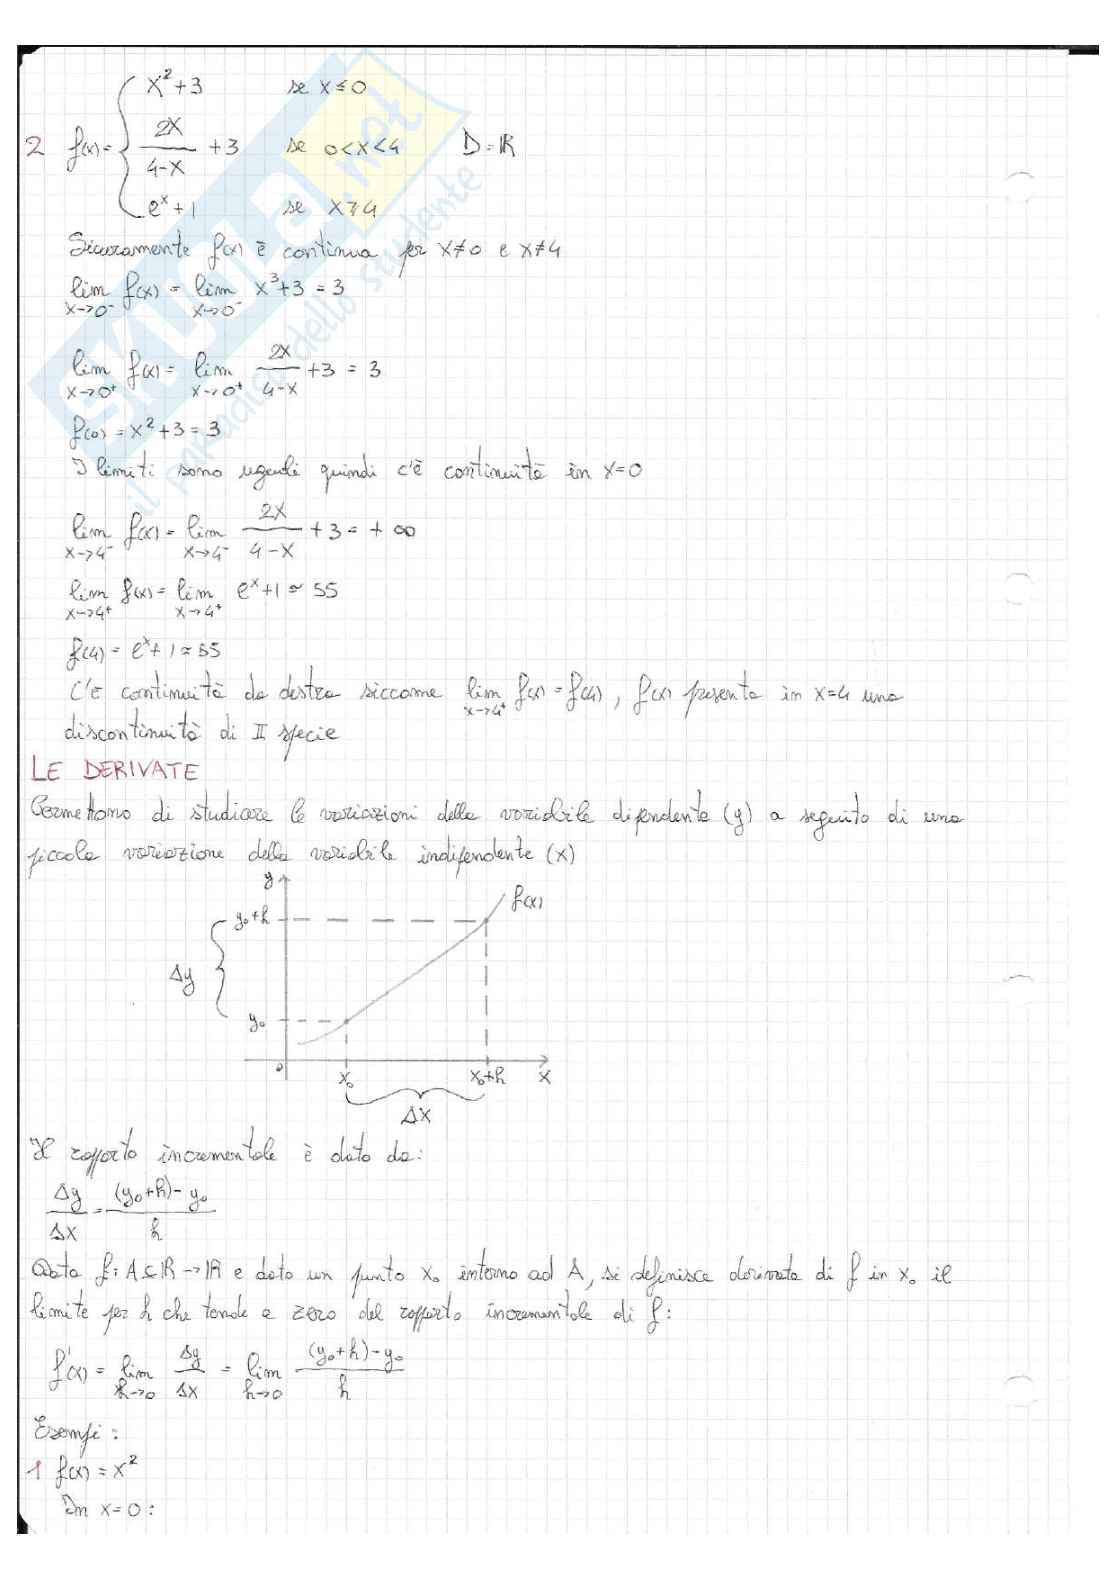 x²+3 se x≤0
2 f(x)= 2x/4-x +3 se 0<x<4 D=ℝ
eˣ+1 se x≥4
Sicuramente f(x) è continua per x≠0 e x≠4
lim x→0⁻ f(x) = lim x→0⁻ x³+3 = 3
lim x→0⁺ f(x) = lim x→0⁺ 2x/4-x +3 = 3
f(0) = x²+3 = 3
I limiti sono uguali quindi c'è continuità in x=0
lim x→4⁻ f(x) = lim x→4⁻ 2x/4-x +3 = +∞
lim x→4⁺ f(x) = lim x→4⁺ eˣ+1 ≃ 55
f(4) = eˣ+1 ≃ 55
C'è continuità da destra siccome lim x→4⁺ f(x) = f(4), f(x) presenta in x=4 una
discontinuità di II specie
LE DERIVATE
Permettono di studiare le variazioni della variabile dipendente (y) a seguito di una
piccola variazione della variabile indipendente (x)
y
f(x)
y₀+h
Δy
y₀
0 x₀ x₀+h x
Δx
Il rapporto incrementale è dato da:
Δy/Δx = (y₀+h)-y₀/h
Data f: A⊆ℝ→ℝ e dato un punto x₀ intorno ad A, si definisce derivata di f in x₀ il
limite per h che tende a zero del rapporto incrementale di f:
f'(x) = lim h→0 Δy/Δx = lim h→0 (y₀+h)-y₀/h
Esempi:
1 f(x) = x²
In x=0:
SKUOLA.net
il paradiso dello studente